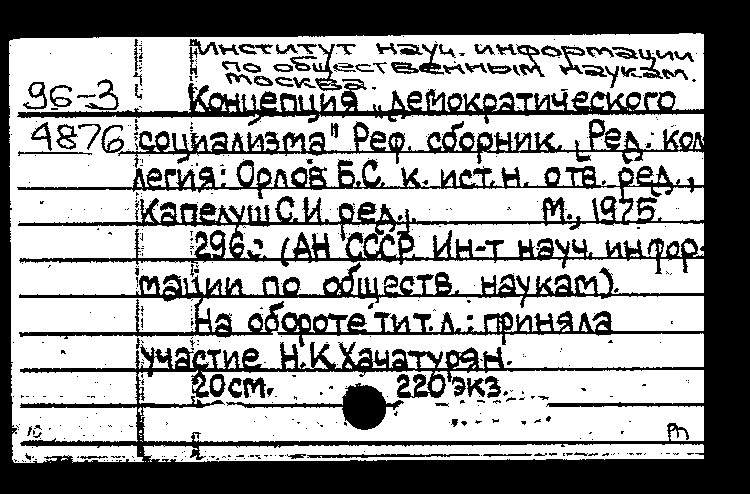 Институт науч. информации
по общественным наукам.
Москва.
96-3 Концепция „демократического
4876 социализма" Реф. сборник. [Ред. кол
легия: Орлов Б.С. к. ист. н. отв. ред.,
Капелуш С.И. ред.].  М., 1975.
296с (АН СССР. Ин-т науч. инфор-
мации по обществ. наукам).
На обороте тит. л.: приняла
участие Н.К. Хачатурян.
20 см. 220 экз.
10